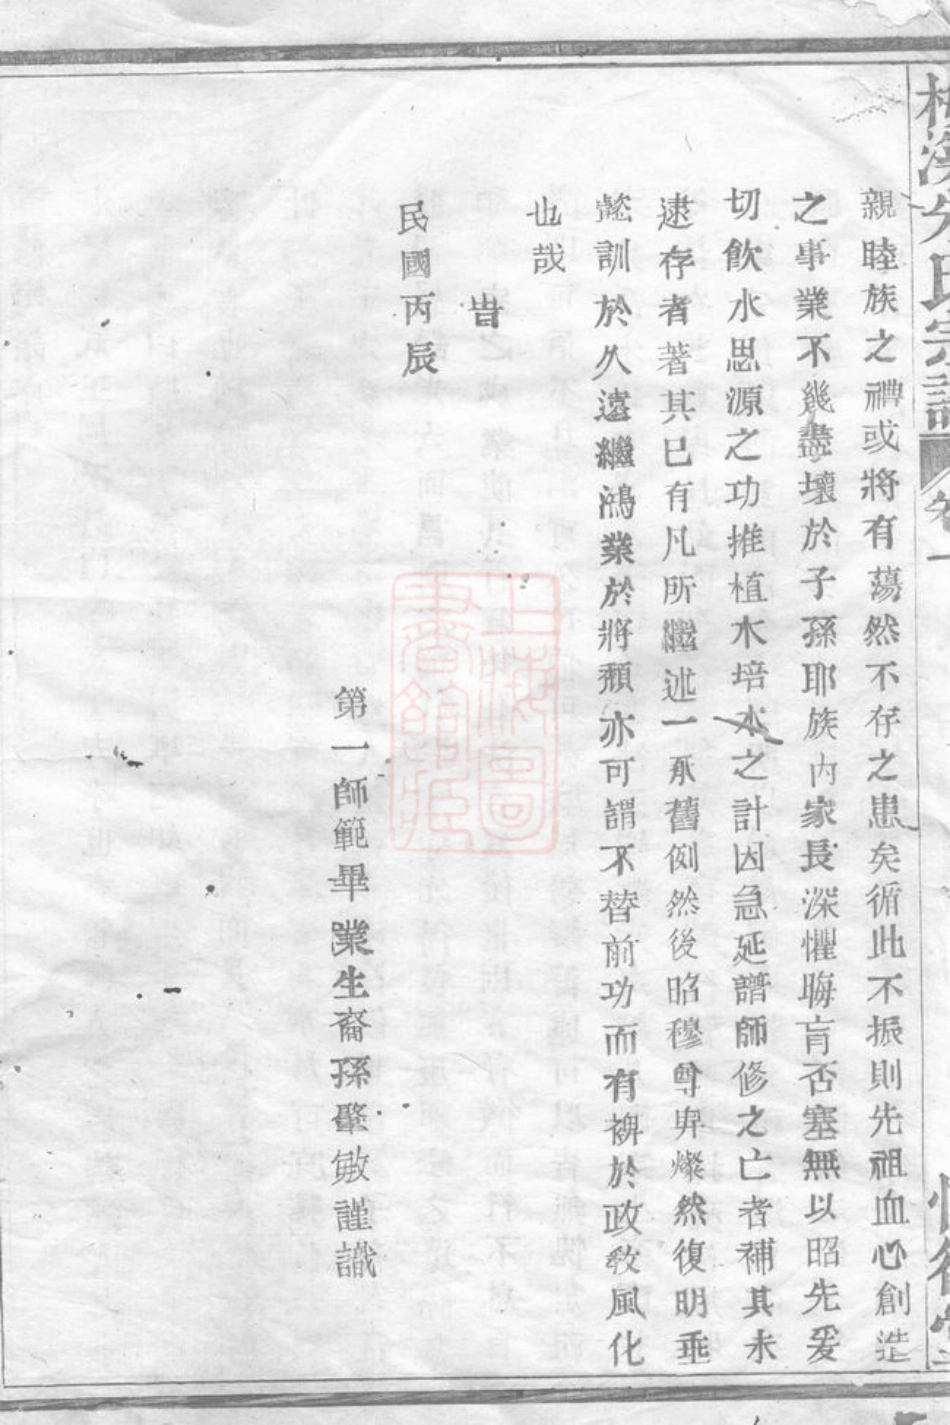 親睦族之禮或將有蕩然不存之患矣循此不振則先祖血心創造
之事業不幾盡壞於子孫耶族內家長深懼晦肓否塞無以昭先爰
切飲水思源之功推植木培水之計因急延譜師修之亡者補其未
逮存者著其已有凡所繼述一承舊例然後昭穆尊卑燦然復明垂
懿訓於久遠繼鴻業於將頹亦可謂不替前功而有裨於政教風化
也哉
旹
民國丙辰
第一師範畢業生裔孫肇敏謹識
上海圖書館藏